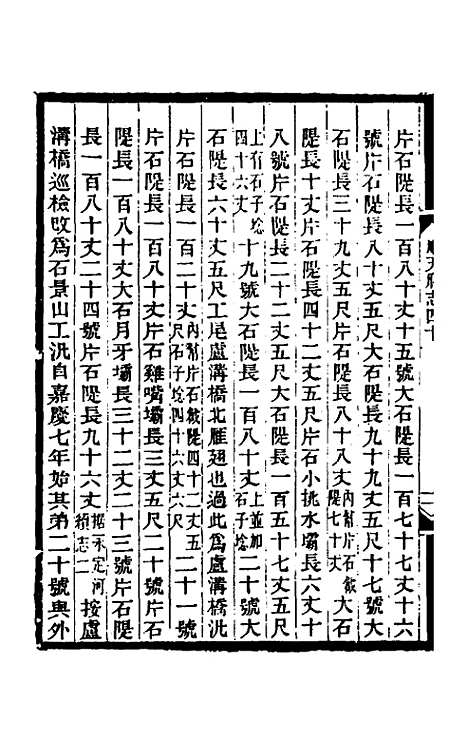 片石隄長一百八十丈十五號大石隄長一百七十七丈十六
號片石隄長八十九丈五尺大石隄長九十九丈五尺十七號大
石隄長三十九丈五尺片石隄長八十八丈內幫片石戧隄七十丈大石
隄長十丈片石隄長四十二丈五尺片石小挑水壩長六丈十
八號片石隄長二十二丈五尺大石隄長一百五十七丈五尺
上有石子埝四十六丈十九號大石隄長一百八十丈上並加石子埝二十號大
石隄長六十丈五尺工尾盧溝橋北雁翅也過此爲盧溝橋汛
片石隄長一百二十丈內幫片石戧隄四十二丈五尺石子埝四十六丈六尺二十一號
片石隄長一百八十丈片石雞嘴壩長三丈五尺二十號片石
隄長一百八十丈大石月牙壩長三十二丈二十三號片石隄
長一百八十丈二十四號片石隄長九十六丈據永定河續志二按盧
溝橋巡檢改爲石景山工汛自嘉慶七年始其第二十號與外
順天府志四十